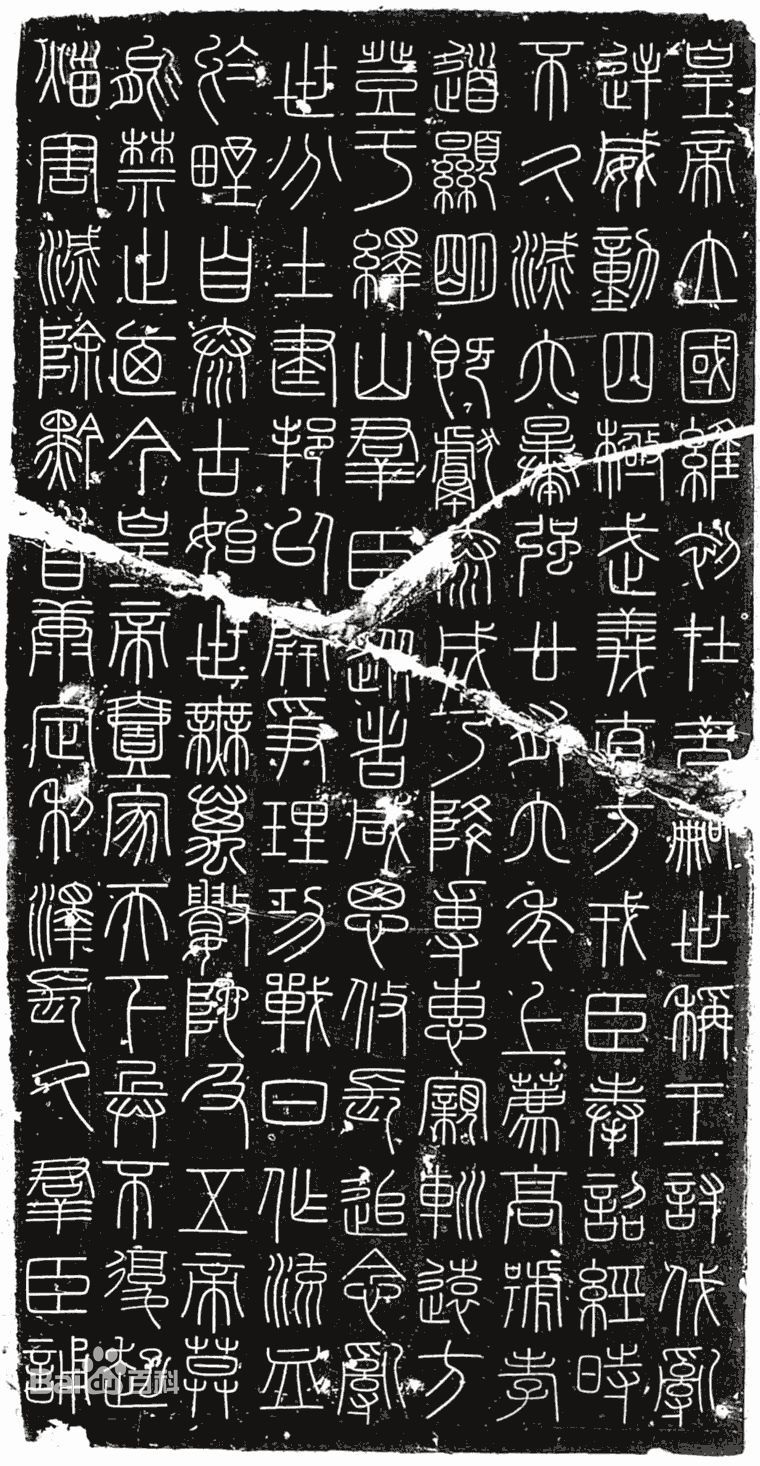 皇帝立國維初在昔嗣世稱王討伐亂
逆威動四極武義直方戎臣奉詔經時
不久滅六暴強廿有六年上薦高號孝
道顯明既獻泰成乃降專惠寴䡅遠方
登于繹山群臣從者咸思攸長追念亂
世分土建邦以開爭理功戰日作流血
於野自泰古始世無萬數陀及五帝莫
能禁止廼今皇帝壹家天下兵不復起
災害滅除黔首康定利澤長久群臣誦
Baidu百科